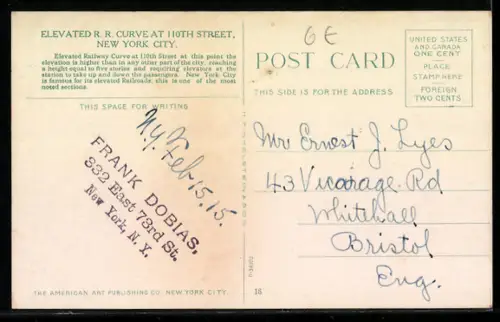 ELEVATED R. R. CURVE AT 110TH STREET,
NEW YORK CITY.
Elevated Railway Curve at 110th Street at this point the
elevation is higher than in any other part of the city, reaching
a height equal to five stories and requiring elevators at the
station to take up and down the passengers. New York City
is famous for its elevated Railroads; this is one of the most
noted sections.
6E
POST CARD
THIS SIDE IS FOR THE ADDRESS
UNITED STATES
AND CANADA
ONE CENT
PLACE
STAMP HERE
FOREIGN
TWO CENTS
THIS SPACE FOR WRITING
N.Y.
Feb 15. 15.
FRANK DOBIAS,
332 East 73rd St.
New York, N. Y.
Mr Ernest J. Lyes
43 Vicarage Rd
Whitehall
Bristol
Eng.
THE AMERICAN ART PUBLISHING CO. NEW YORK CITY.
16